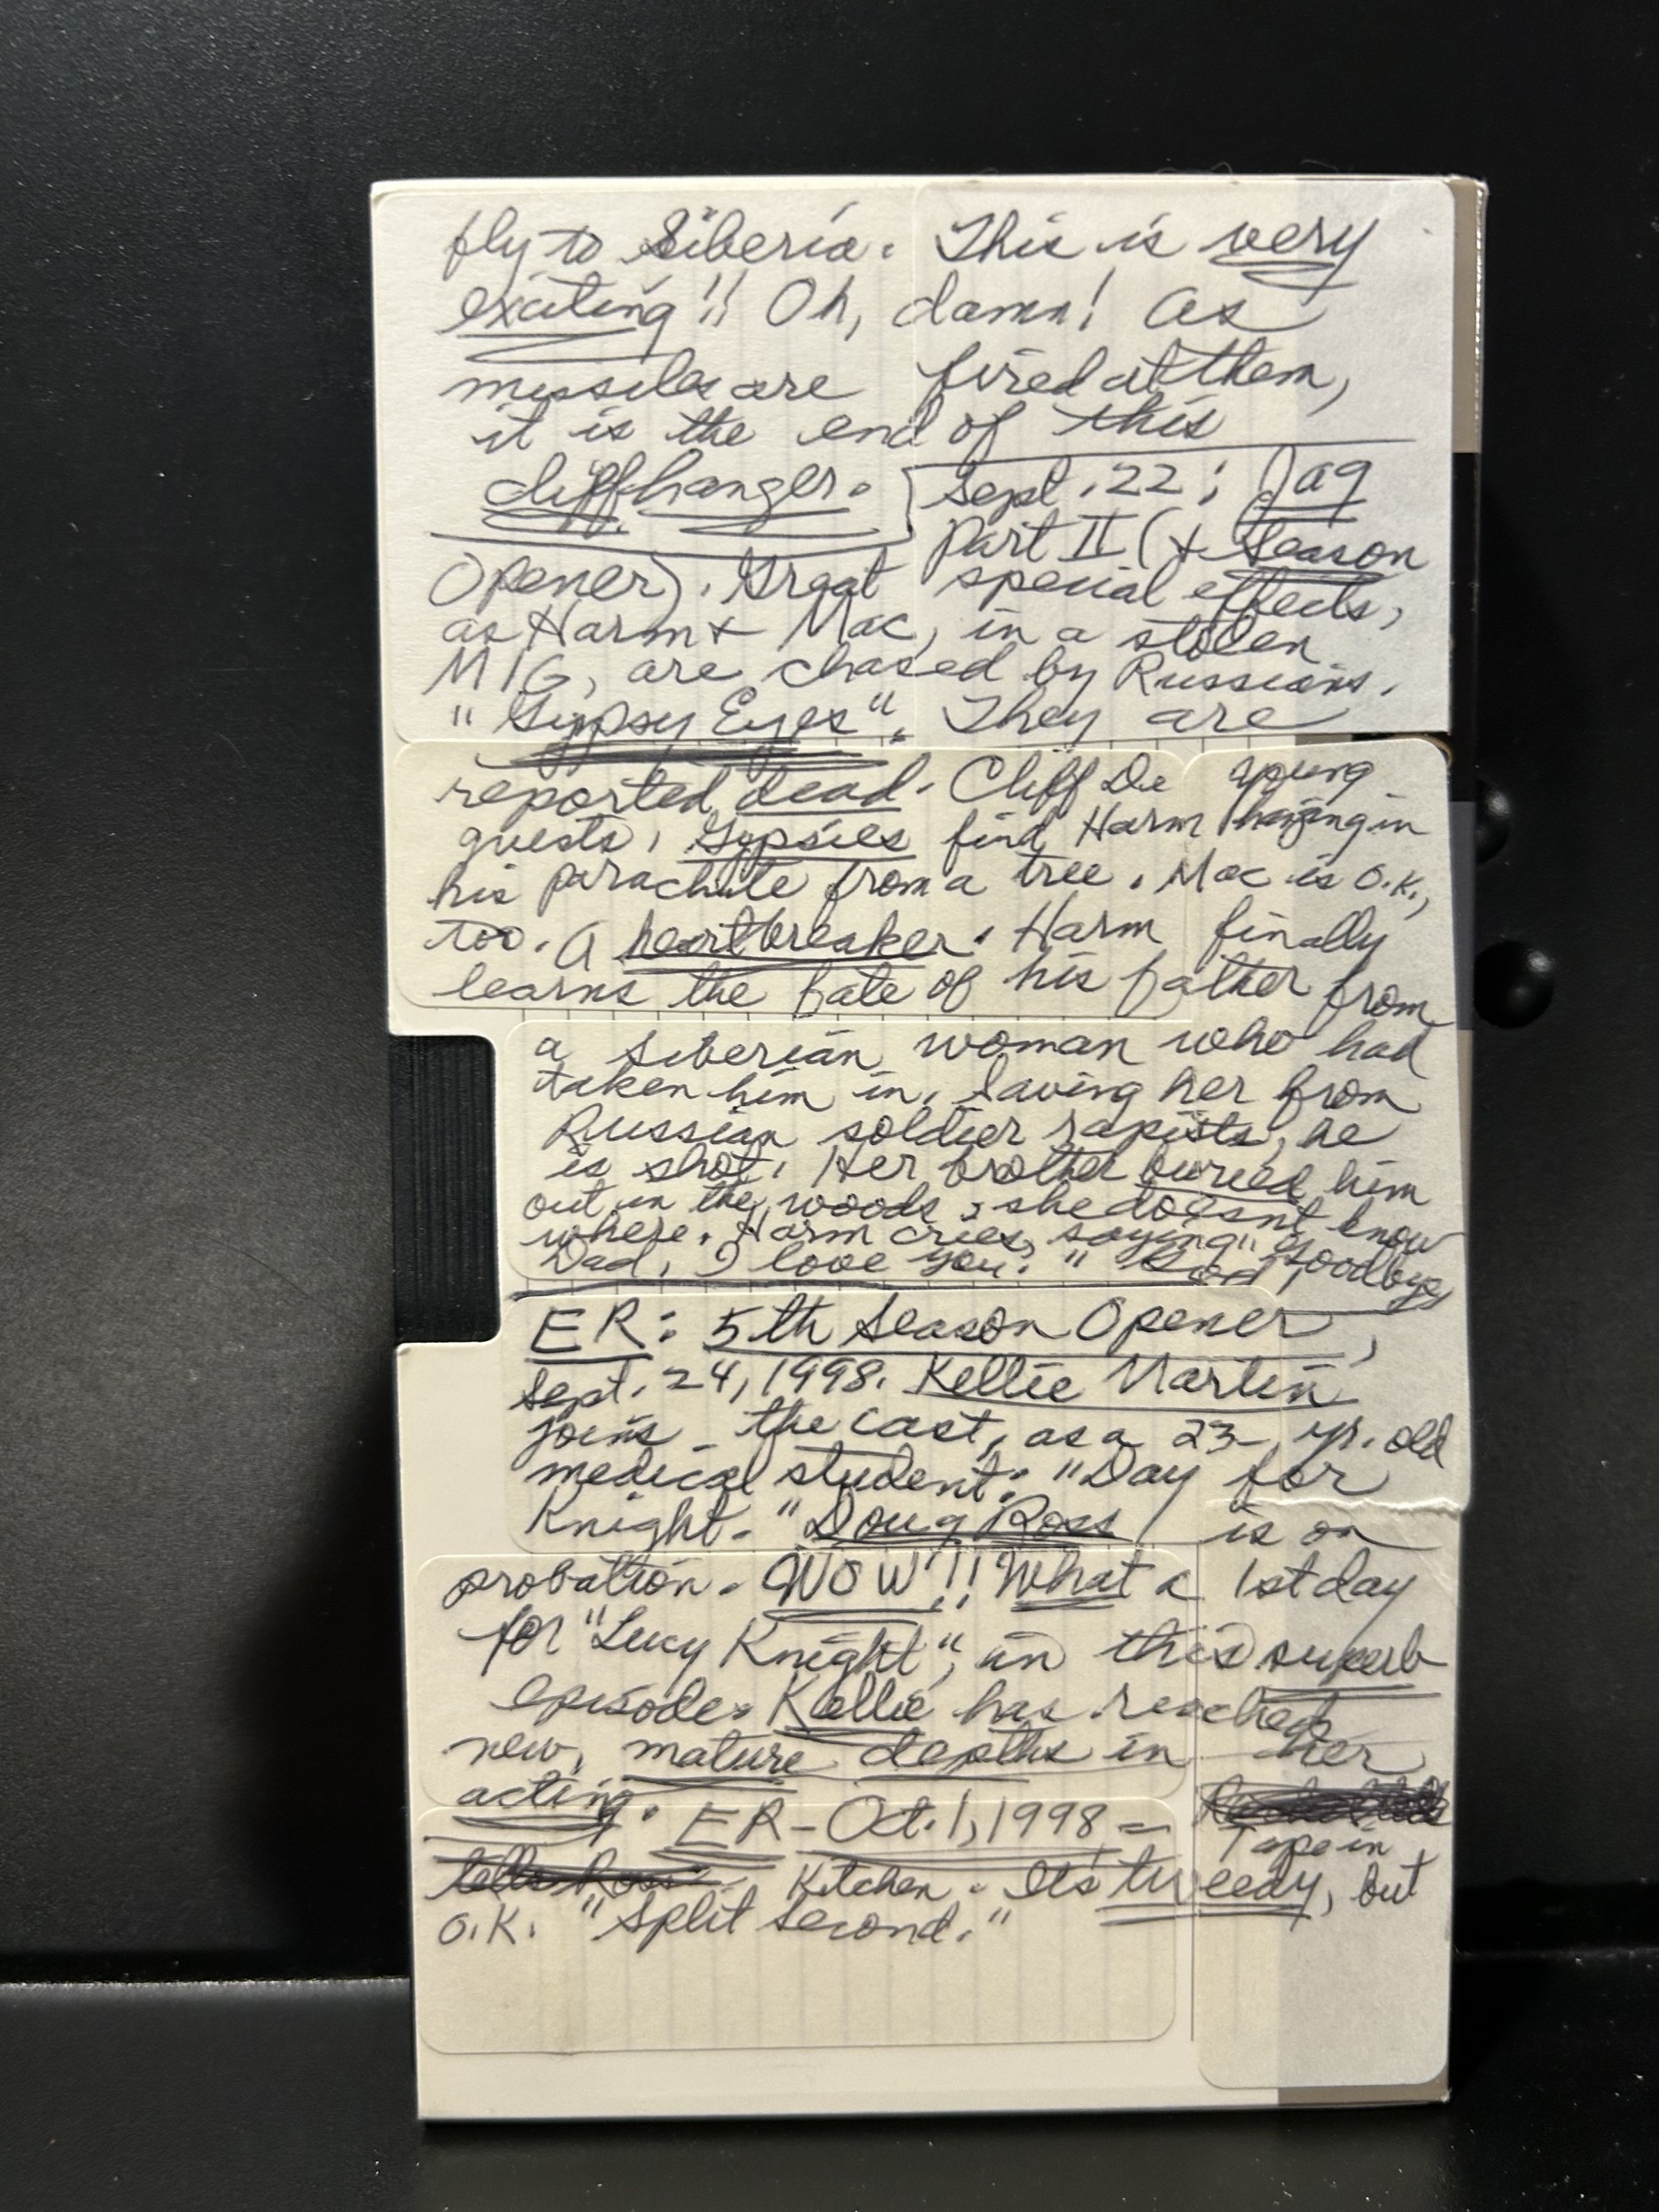 fly to Siberia. This is very
exciting!! Oh, damn! As
missiles are fired at them,
it is the end of this
cliffhanger. Sept. 22: Jag
Part II (+ Season
Opener). Great special effects,
as Harm + Mac, in a stolen
MIG, are chased by Russians.
"Gypsy Eyes". They are
reported dead. Cliff De Young
guests. Gypsies find Harm hanging in
his parachute from a tree. Mac is O.K.,
too. A heartbreaker. Harm finally
learns the fate of his father from
a Siberian woman who had
taken him in. Saving her from
Russian soldier rapists, he
is shot. Her brother buried him
out in the woods; she doesn't know
where. Harm cries, saying "Goodbye,
Dad, I love you."
ER: 5th Season Opener,
Sept. 24, 1998. Kellie Martin
joins the cast, as a 23-yr. old
medical student: "Day for
Knight." Doug Ross is on
probation. WOW!! What a 1st day
for "Lucy Knight", in this superb
episode. Kellie has reached
new, mature depths in her
acting. ER - Oct. 1, 1998 =
Tape in
Kitchen. It's tweedy, but
O.K. "Split Second."